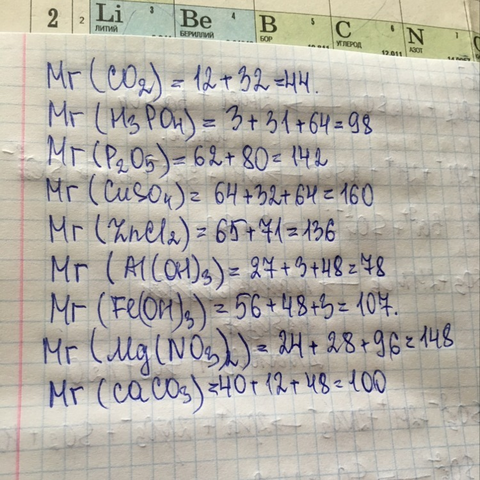 2 2 Li 3 Be 4 B 5 C 6 N 7
ЛИТИЙ БЕРИЛЛИЙ БОР УГЛЕРОД АЗОТ
10,811 12,011
Mr (CO2) = 12+32=44.
Mr (H3PO4) = 3+31+64=98
Mr (P2O5)=62+80=142
Mr (CuSO4) = 64+32+64=160
Mr (ZnCl2)=65+71=136
Mr (Al(OH)3)=27+3+48=78
Mr (Fe(OH)3)=56+48+3=107.
Mr (Mg(NO3)2) = 24+28+96=148
Mr (CaCO3)=40+12+48=100